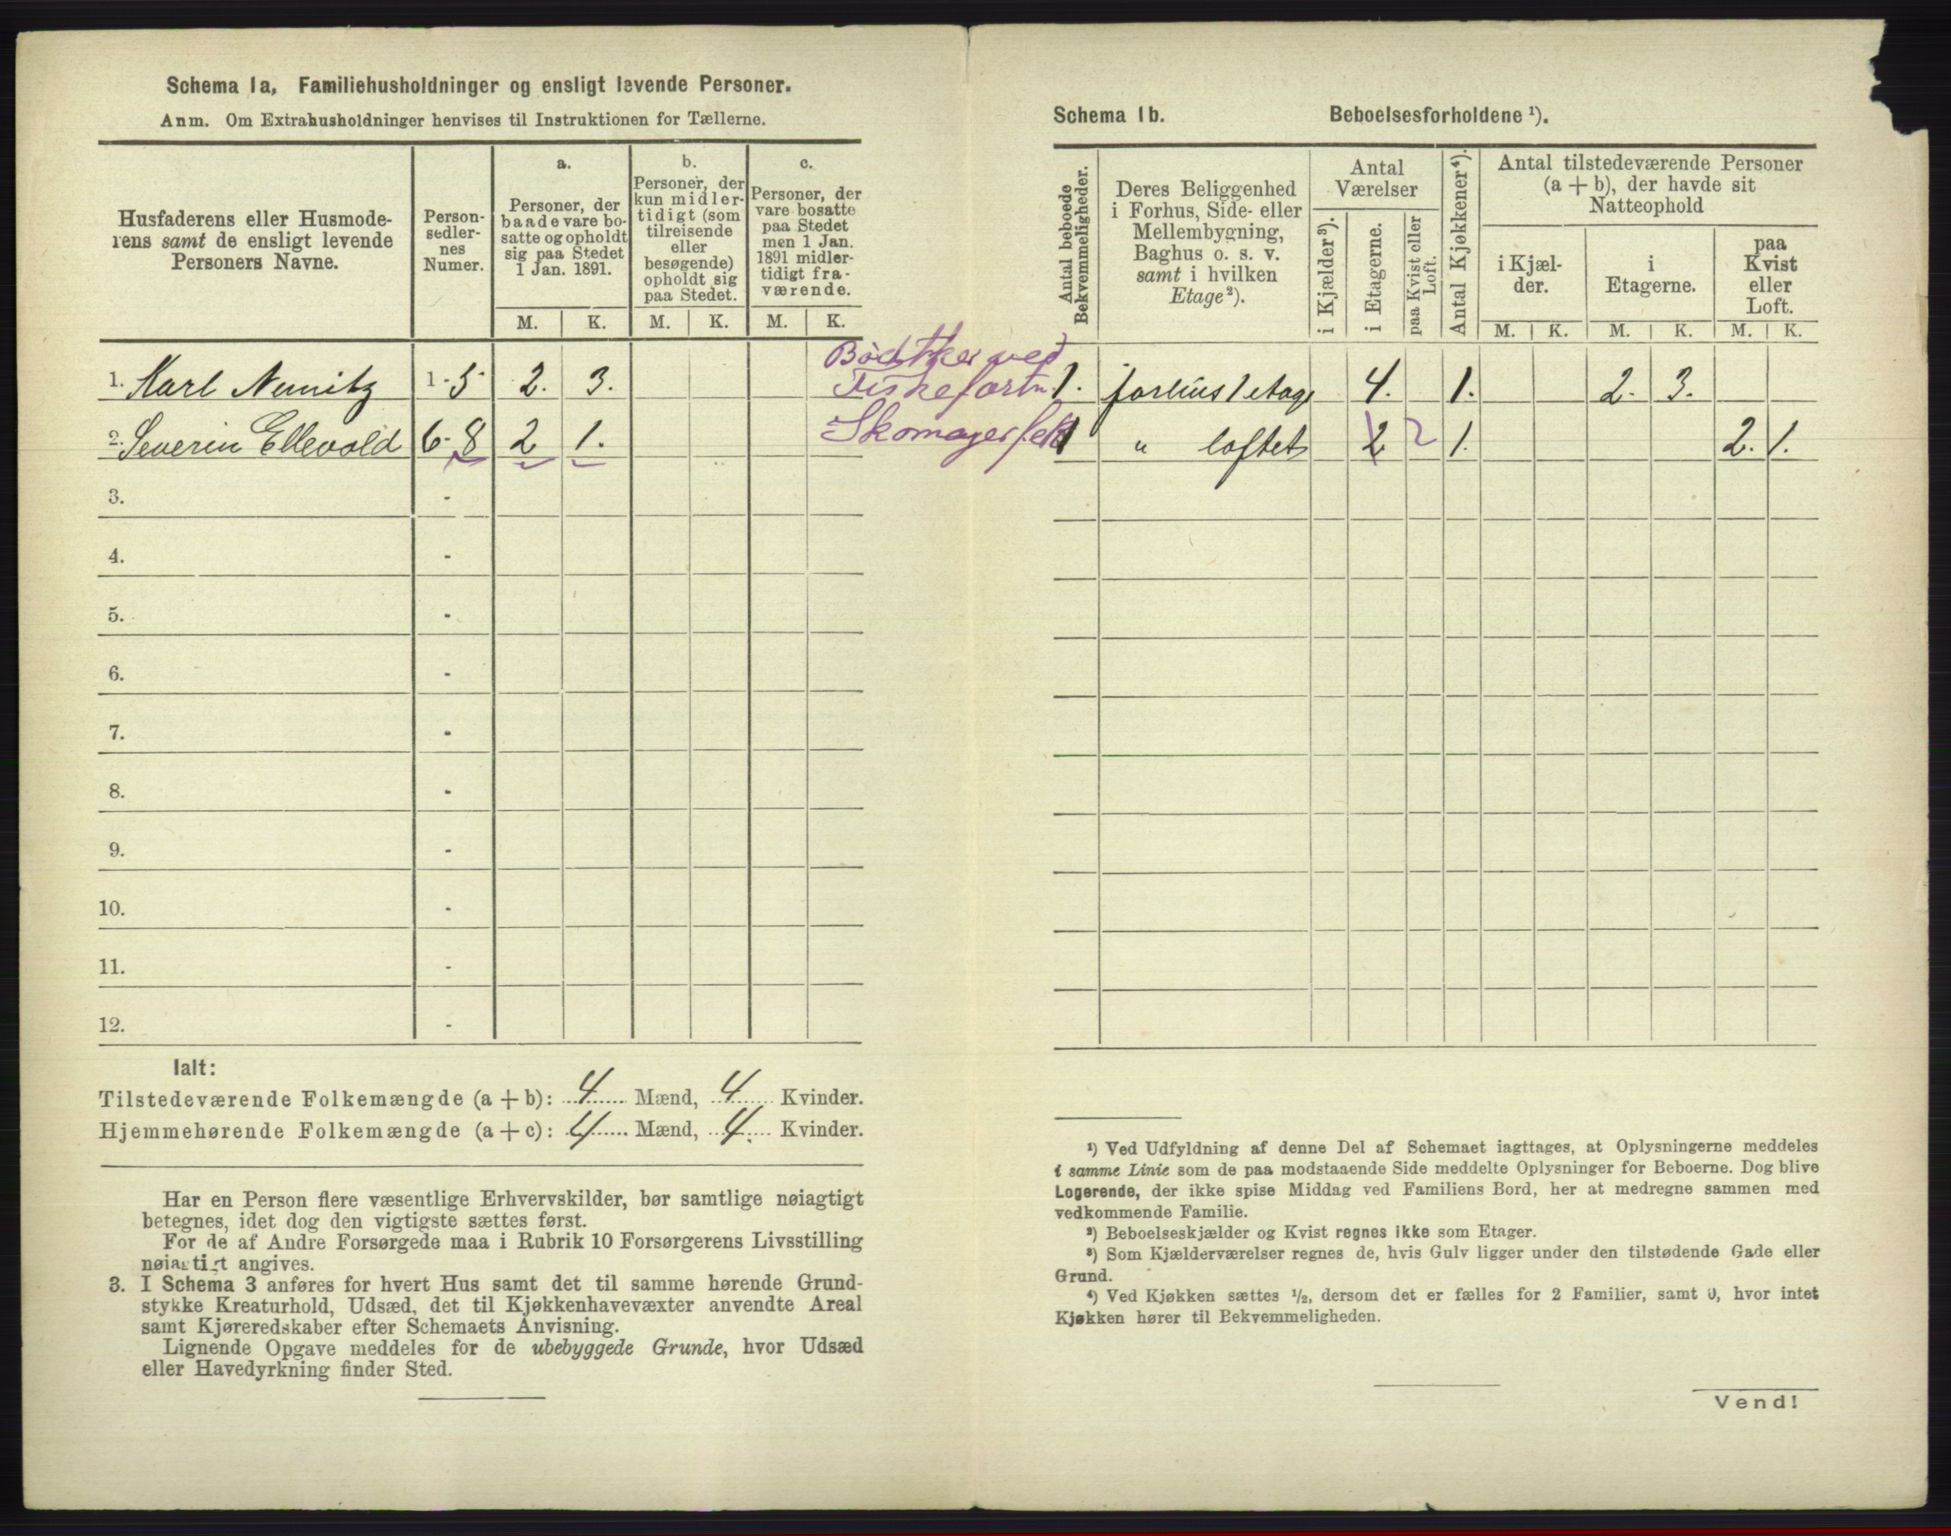 Schema 1a, Familiehusholdninger og ensligt levende Personer.
Anm. Om Extrahusholdninger henvises til Instruktionen for Tællerne.
Husfaderens eller Husmoderens samt de ensligt levende Personers Navne.
Personsedlernes Numer.
a. Personer, der baade vare bosatte og opholdt sig paa Stedet 1 Jan. 1891.
b. Personer, der kun midlertidigt (som tilreisende eller besøgende) opholdt sig paa Stedet.
c. Personer, der vare bosatte paa Stedet men 1 Jan. 1891 midlertidigt fraværende.
M. K. M. K. M. K.
1. Karl Nemitz 1-5 2. 3. Bødtker ved Fiskeforln.
2. Severin Ellevold 6-8 2 1. Skomager
3. -
4. -
5. -
6. -
7. -
8. -
9. -
10. -
11. -
12. -
Ialt:
Tilstedeværende Folkemængde (a + b): 4 Mænd, 4 Kvinder.
Hjemmehørende Folkemængde (a + c): 4 Mænd, 4. Kvinder.
Har en Person flere væsentlige Erhvervskilder, bør samtlige nøiagtigt
betegnes, idet dog den vigtigste sættes først.
For de af Andre Forsørgede maa i Rubrik 10 Forsørgerens Livsstilling
nøiagtigt angives.
3. I Schema 3 anføres for hvert Hus samt det til samme hørende Grund-
stykke Kreaturhold, Udsæd, det til Kjøkkenhavevæxter anvendte Areal
samt Kjøreredskaber efter Schemaets Anvisning.
Lignende Opgave meddeles for de ubebyggede Grunde, hvor Udsæd
eller Havedyrkning finder Sted.
Schema 1b. Beboelsesforholdene ¹).
Antal beboede Bekvemmeligheder.
Deres Beliggenhed i Forhus, Side- eller Mellembygning, Baghus o. s. v. samt i hvilken Etage²).
Antal Værelser
i Kjælder³).
i Etagerne.
paa Kvist eller Loft.
Antal Kjøkkener⁴).
Antal tilstedeværende Personer (a + b), der havde sit Natteophold
i Kjælder.
i Etagerne.
paa Kvist eller Loft.
M. K. M. K. M. K.
1. forhus 1 etage 4. 1. 2. 3.
1 " loftet 2 2 1. 2. 1.
¹) Ved Udfyldning af denne Del af Schemaet iagttages, at Oplysningerne meddeles
i samme Linie som de paa modstaaende Side meddelte Oplysninger for Beboerne. Dog blive
Logerende, der ikke spise Middag ved Familiens Bord, her at medregne sammen med
vedkommende Familie.
²) Beboelseskjælder og Kvist regnes ikke som Etager.
³) Som Kjælderværelser regnes de, hvis Gulv ligger under den tilstødende Gade eller
Grund.
⁴) Ved Kjøkken sættes ½, dersom det er fælles for 2 Familier, samt 0, hvor intet
Kjøkken hører til Bekvemmeligheden.
Vend!